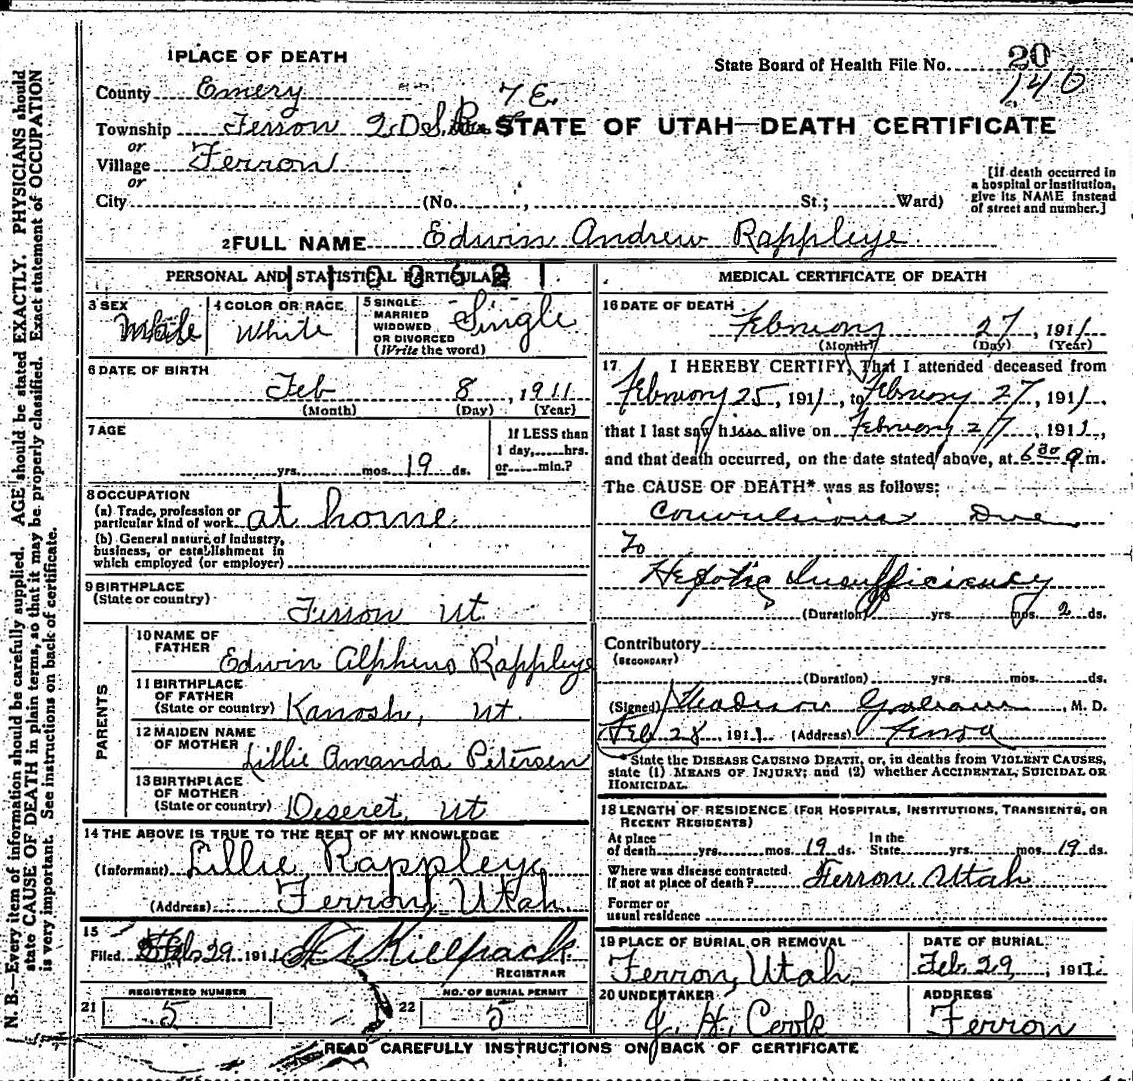 N. B.—Every item of information should be carefully supplied. AGE should be stated EXACTLY. PHYSICIANS should
state CAUSE OF DEATH in plain terms, so that it may be properly classified. Exact statement of OCCUPATION
is very important. See instructions on back of certificate.
1 PLACE OF DEATH
State Board of Health File No. 20
146
County Emery
7 E.
Township Ferron
STATE OF UTAH—DEATH CERTIFICATE
or
Village Ferron
or
City (No. , St.; Ward)
[If death occurred in
a hospital or institution,
give its NAME instead
of street and number.]
2 FULL NAME Edwin Andrew Rappleye
PERSONAL AND STATISTICAL PARTICULARS
3 SEX Male
4 COLOR OR RACE White
5 SINGLE
MARRIED
WIDOWED
OR DIVORCED
(Write the word)
Single
6 DATE OF BIRTH
Feb 8, 1911
(Month) (Day) (Year)
7 AGE
yrs. mos. 19 ds.
If LESS than
1 day, hrs.
or min.?
8 OCCUPATION
(a) Trade, profession or
particular kind of work at home
(b) General nature of industry,
business, or establishment in
which employed (or employer)
9 BIRTHPLACE
(State or country)
Ferron Ut.
PARENTS
10 NAME OF
FATHER
Edwin Alphins Rappleye
11 BIRTHPLACE
OF FATHER
(State or country) Kanosh, Ut.
12 MAIDEN NAME
OF MOTHER
Lillie Amanda Petersen
13 BIRTHPLACE
OF MOTHER
(State or country) Deseret, Ut
14 THE ABOVE IS TRUE TO THE BEST OF MY KNOWLEDGE
(Informant) Lillie Rappleye
(Address) Ferron, Utah
15
Filed Feb. 29 1911 Killpack
REGISTRAR
REGISTERED NUMBER
21 5
NO. OF BURIAL PERMIT
22 5
MEDICAL CERTIFICATE OF DEATH
16 DATE OF DEATH
February 27, 1911
(Month) (Day) (Year)
17 I HEREBY CERTIFY, That I attended deceased from
February 25, 1911, to February 27, 1911
that I last saw him alive on February 27, 1911,
and that death occurred, on the date stated above, at 6 30 a m.
The CAUSE OF DEATH* was as follows:
Convulsions Due
To
Hepatic Insufficiency
(Duration) yrs. mos. 2 ds.
Contributory
(SECONDARY)
(Duration) yrs. mos. ds.
(Signed) , M. D.
Feb 28 1911 (Address) Ferron
*State the DISEASE CAUSING DEATH, or, in deaths from VIOLENT CAUSES,
state (1) MEANS OF INJURY; and (2) whether ACCIDENTAL, SUICIDAL OR
HOMICIDAL.
18 LENGTH OF RESIDENCE (FOR HOSPITALS, INSTITUTIONS, TRANSIENTS, OR
RECENT RESIDENTS)
At place
of death yrs. mos. 19 ds. In the
State yrs. mos. 19 ds.
Where was disease contracted,
If not at place of death? Ferron Utah
Former or
usual residence
19 PLACE OF BURIAL OR REMOVAL
Ferron, Utah
DATE OF BURIAL
Feb 29, 1911
20 UNDERTAKER
J. H. Cook
ADDRESS
Ferron
READ CAREFULLY INSTRUCTIONS ON BACK OF CERTIFICATE